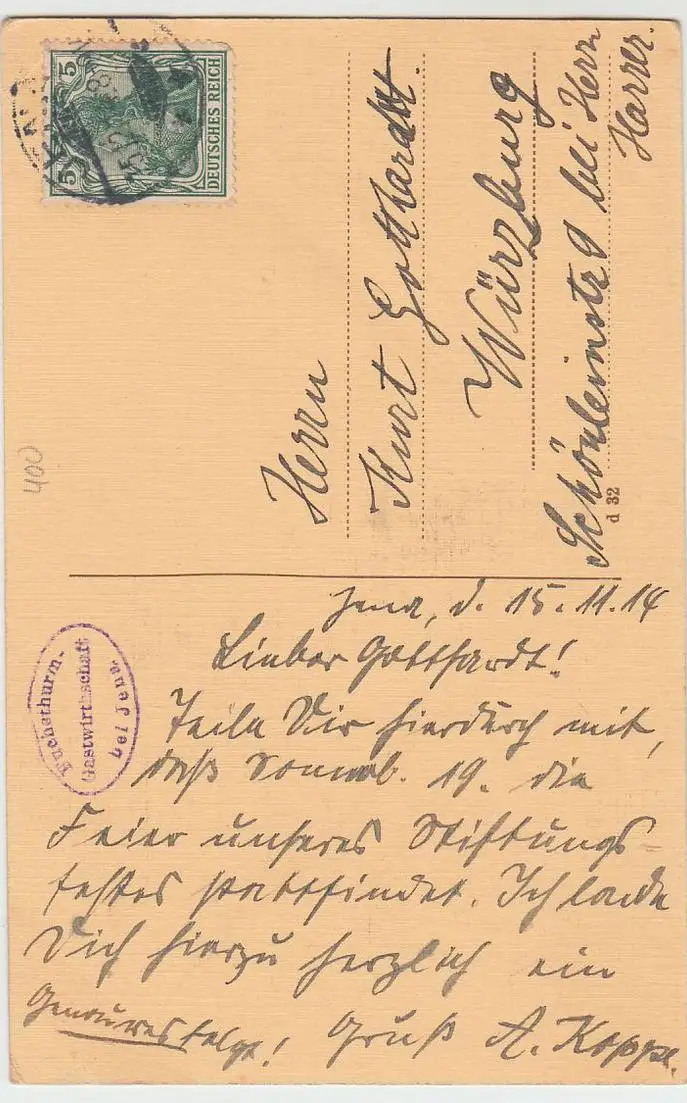 5 DEUTSCHES REICH 5
Herrn
Kurt Gotthardt.
Würzburg
Schönleinstr 9 bei Herrn
Harrer.
d 32
400
Fuchsthurm-
Gastwirthschaft
bei Jena.
Jena, d. 15.11.14
Lieber Gotthardt!
Teile Dir hierdurch mit,
daß Sonnab. 19. die
Feier unseres Stiftungs
festes stattfindet. Ich lade
Dich hierzu herzlich ein
Genaueres folgt! Gruß A. Koppe.